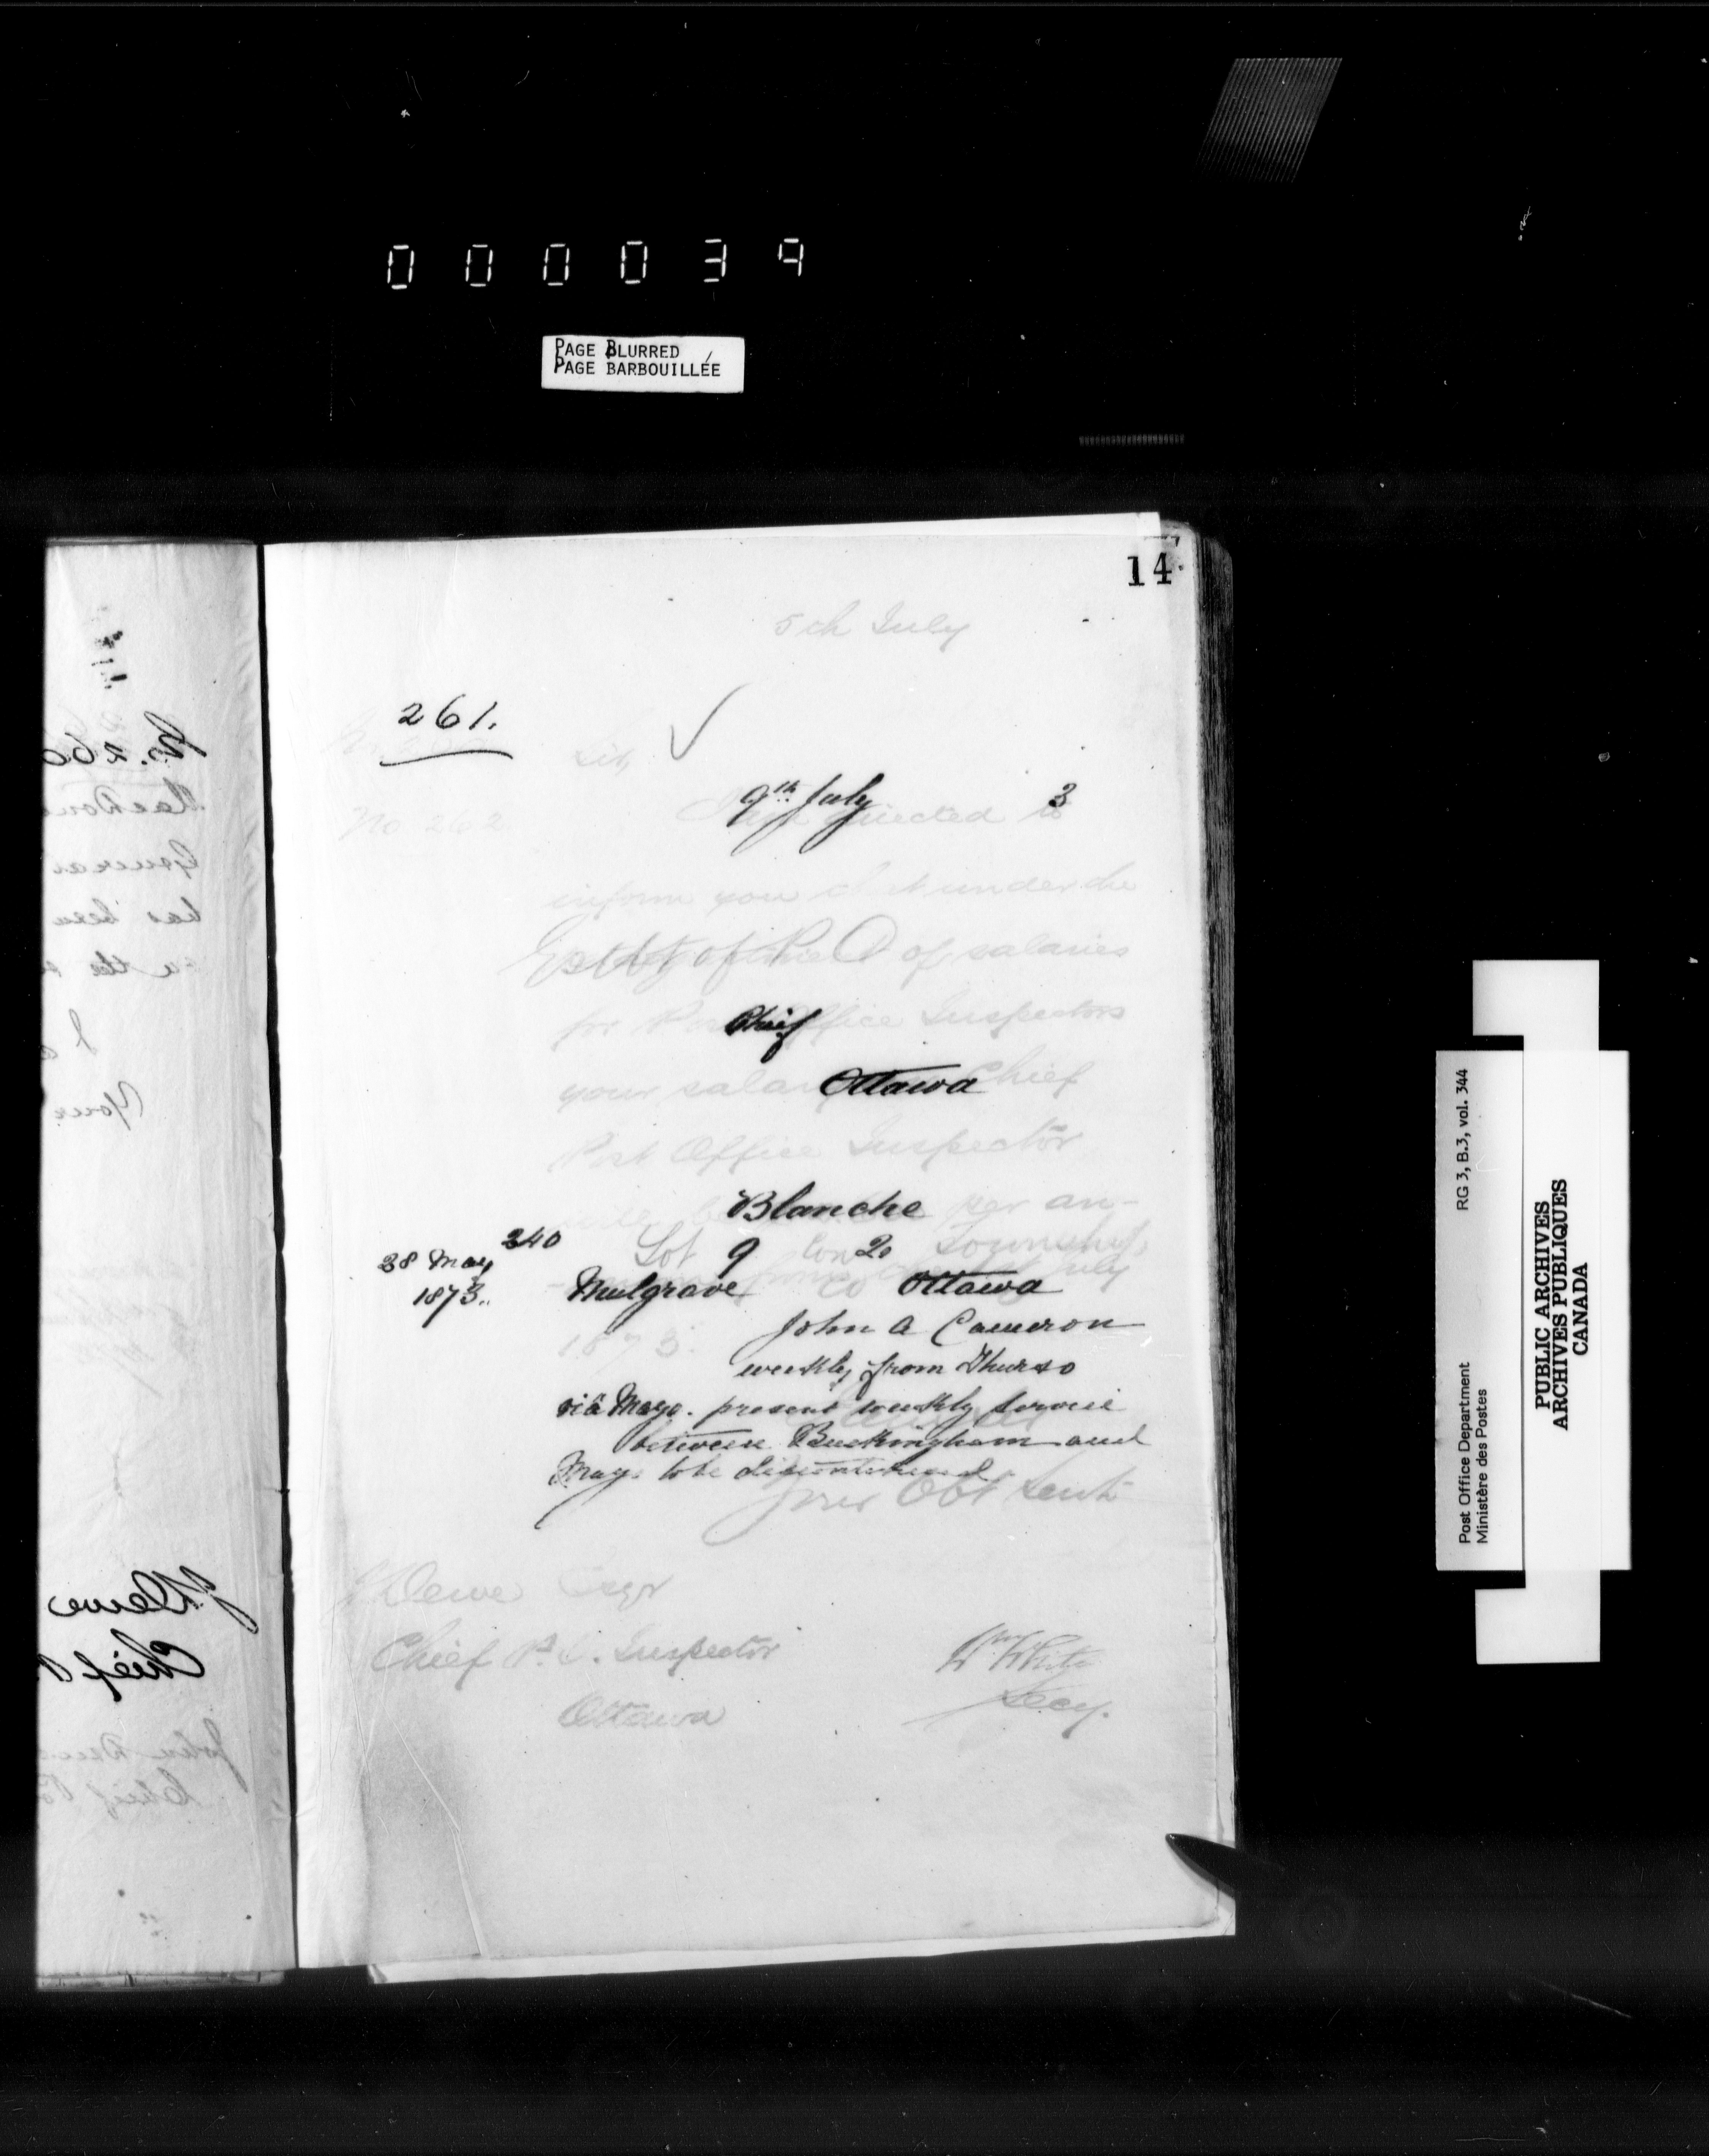 000039
PAGE BLURRED
PAGE BARBOUILLÉE
14
5th July
261.
Sir,
9th July 3
No 262
directed to
inform you that under the
of salaries
for Post Office Inspectors
Chief
your salary Chief
Ottawa
Post Office Inspector
Blanche
will be per an-
240
28 May
1873..
Lot 9 Con 2 Township
July
Mulgrave Co Ottawa
1873.
John A Cameron
weekly from Thurso
viâ Mayo. present weekly service
between Buckingham and
Mayo to be discontinued
your Obt Servt
J Dewe Esqr
Chief P.O. Inspector
Ottawa
Wm White
Secy.
No. 260
General
has been
in the
I a
Your
J Dewe
Chief P
John Dewe
Chief Po
Post Office Department RG 3, B.3, vol. 344
Ministère des Postes
PUBLIC ARCHIVES
ARCHIVES PUBLIQUES
CANADA